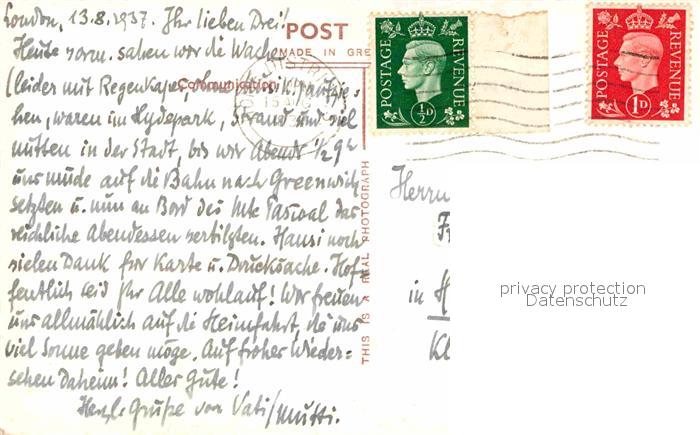 London, 13.8.1937. Ihr lieben Drei!
Heute vorm. sahen wir die Wache
(leider mit Regenkapes, ohne aufzie=
hen, waren im Hydepark, Strand und viel
mitten in der Stadt, bis wir Abends ½9h
uns müde auf die Bahn nach Greenwich
setzten u. nun an Bord des Pascoal das
reichliche Abendessen vertilgten. Hansi noch
vielen Dank für Karte u. Drucksache. Hof=
fentlich seid Ihr Alle wohlauf! Wir freuen
uns allmählich auf die Heimfahrt, die uns
viel Sonne geben möge. Auf froher Wieder=
sehen Daheim! Aller Gute!
Herzl. Grüße von Vati/Mutti.
POST
MADE IN GRE
Communication
THIS IS A REAL PHOTOGRAPH
POSTAGE REVENUE
½D
POSTAGE REVENUE
1D
Herrn
Fr
in H
Kl
privacy protection
Datenschutz